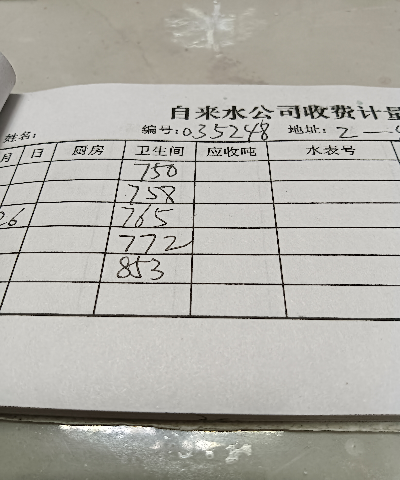 自来水公司收费计量
姓名: 编号:035248 地址: 2一
月 日 厨房 卫生间 应收吨 水表号
750
758
26 765
772
853